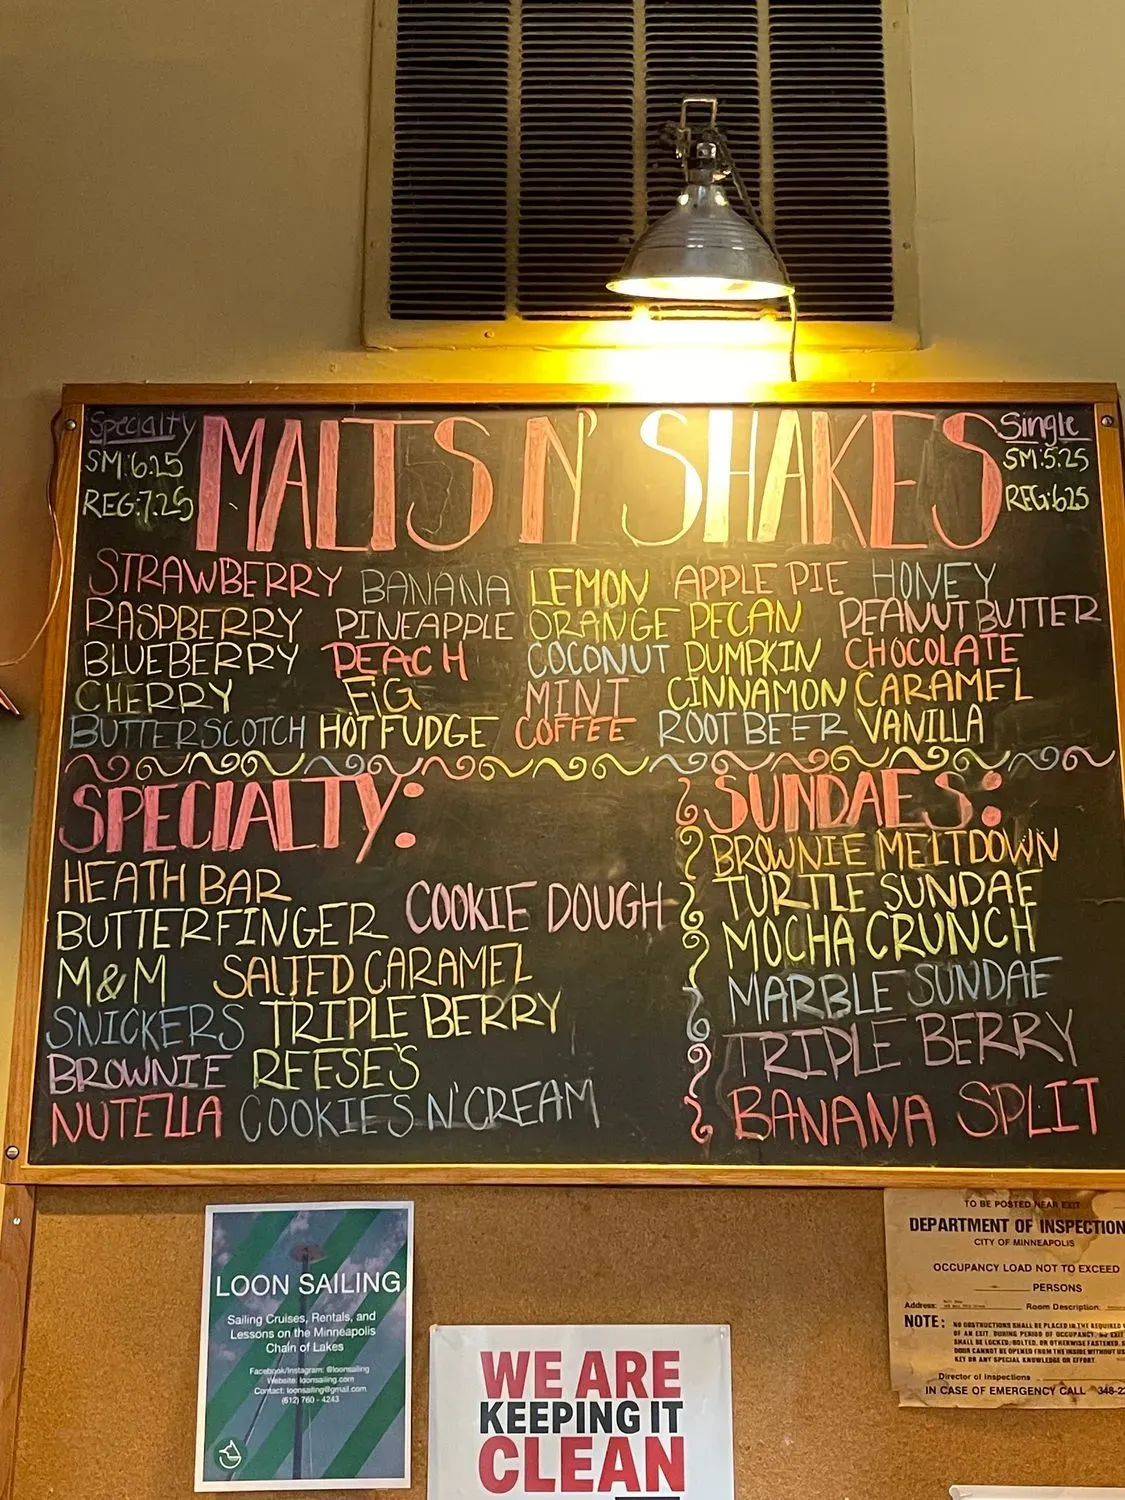 Specialty
SM:6.25
REG:7.25
MALTS N' SHAKES
Single
SM:5.25
REG:6.25
STRAWBERRY BANANA LEMON APPLE PIE HONEY
RASPBERRY PINEAPPLE ORANGE PECAN PEANUT BUTTER
BLUEBERRY PEACH COCONUT PUMPKIN CHOCOLATE
CHERRY FIG MINT CINNAMON CARAMEL
BUTTERSCOTCH HOT FUDGE COFFEE ROOT BEER VANILLA
SPECIALTY:
HEATH BAR
BUTTERFINGER COOKIE DOUGH
M&M SALTED CARAMEL
SNICKERS TRIPLE BERRY
BROWNIE REESE'S
NUTELLA COOKIES N' CREAM
SUNDAES:
BROWNIE MELTDOWN
TURTLE SUNDAE
MOCHA CRUNCH
MARBLE SUNDAE
TRIPLE BERRY
BANANA SPLIT
LOON SAILING
Sailing Cruises, Rentals, and
Lessons on the Minneapolis
Chain of Lakes
Facebook/Instagram: @loonsailing
Website: loonsailing.com
Contact: loonsailing@gmail.com
(612) 760 - 4243
WE ARE
KEEPING IT
CLEAN
TO BE POSTED NEAR EXIT
DEPARTMENT OF INSPECTION
CITY OF MINNEAPOLIS
OCCUPANCY LOAD NOT TO EXCEED
PERSONS
Address: Room Description:
NOTE: NO OBSTRUCTIONS SHALL BE PLACED IN THE REQUIRED
OF AN EXIT. DURING PERIOD OF OCCUPANCY, NO EXIT
SHALL BE LOCKED, BOLTED, OR OTHERWISE FASTENED,
DOOR CANNOT BE OPENED FROM THE INSIDE WITHOUT
KEY OR ANY SPECIAL KNOWLEDGE OR EFFORT
Director of Inspections
IN CASE OF EMERGENCY CALL 348-